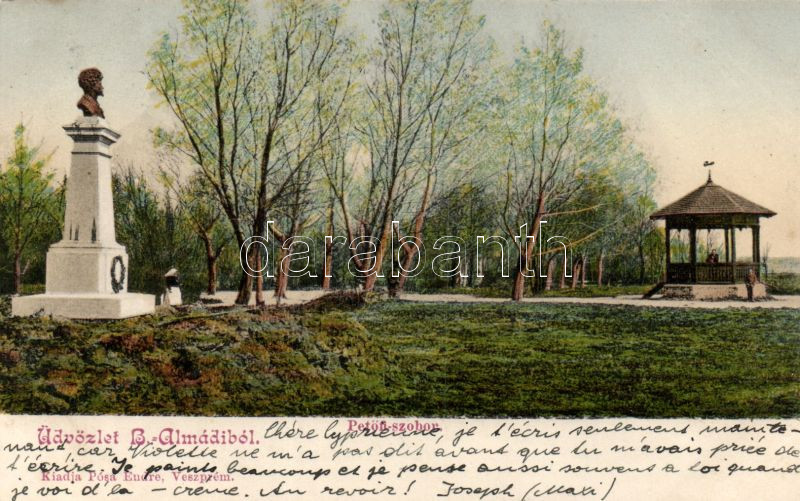 darabanth
Petőfi-szobor.
Üdvözlet B.-Almádiból.
Chère Cyprienne, je t'écris seulement mainte-
nant, car Violette ne m'a pas dit avant que tu m'avais priée de
t'écrire. Je paints beaucoup et je pense aussi souvent a toi quand
Kiadja Pósa Endre, Veszprém.
je vois d' la - creme. Au revoir! Joseph (Maxi)